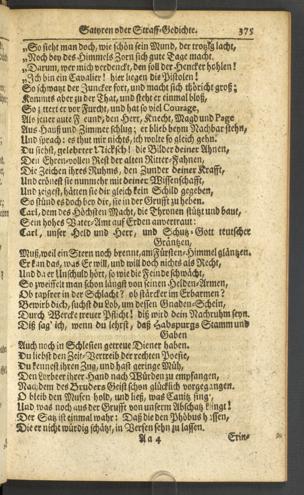 Satyren oder Straff-Gedichte. 375
„So sieht man doch, wie schön sein Mund, der trotzig lacht,
„Noch bey des Himmels Zorn sich gute Tage macht.
„Darum, wer mich verdenckt, den soll der Hencker hohlen!
„Ich bin ein Cavalier! hier liegen die Pistolen!
So schwatzt der Juncker fort, und macht sich thöricht groß;
Kommts aber zu der That, und steht er einmal bloß,
So zittert er vor Furcht, und hat so viel Courage,
Als jener gute Freund, den Herr, Knecht, Magd und Page
Aus Hauß und Zimmer schlug; er blieb beym Nachbar stehn,
Und sprach: es thut mir nichts, ich wolte so gleich gehn.
Du siehst, gelehrter Tiecksch! die Bilder deiner Ahnen,
Den Ehren-vollen Rest der alten Ritter-Fahnen,
Die Zeichen ihres Ruhms, den Zunder deiner Krafft,
Und crönest sie nunmehr mit deiner Wissenschafft,
Und zeigest, hätten sie dir gleich kein Schild gegeben,
So stünd es doch bey dir, sie in der Grufft zu heben.
Carl, dem des Höchsten Macht, die Thronen stützt und baut,
Sein hohes Vater-Amt auf Erden anvertraut:
Carl, unser Held und Herr, und Schutz-Gott teutscher
Gräntzen,
Muß, weil ein Stern noch brennt, am Fürsten-Himmel gläntzen.
Er kan das, was Er will, und will doch nichts als Recht,
Und da er Unschuld hört, so wie die Feinde schwächt,
So zweiffelt man schon längst von seinen Helden-Armen,
Ob tapfrer in der Schlacht? ob stärcker im Erbarmen?
Bewirb dich, suchst du Lob, um dessen Gnaden-Schein,
Durch Wercke treuer Pflicht! diß wird dein Nachruhm seyn.
Diß sag' ich, wenn du lehrst, daß Habspurgs Stamm und
Gaben
Auch noch in Schlesien getreue Diener haben.
Du liebst den Zeit-Vertreib der rechten Poesie,
Du kennest ihren Zug, und hast geringe Müh,
Den Lorbeer ihrer Hand nach Würden zu empfangen,
Nachdem des Bruders Geist schon glücklich vorgegangen.
O bleib den Musen hold, und ließ, was Canitz sing',
Und was noch aus der Grufft von unserm Abschatz klingt!
Der Satz ist einmal wahr: Daß die den Phöbus hassen,
Die er nicht würdig schätzt, in Versen sehn zu lassen.
Aa 4 Erin-